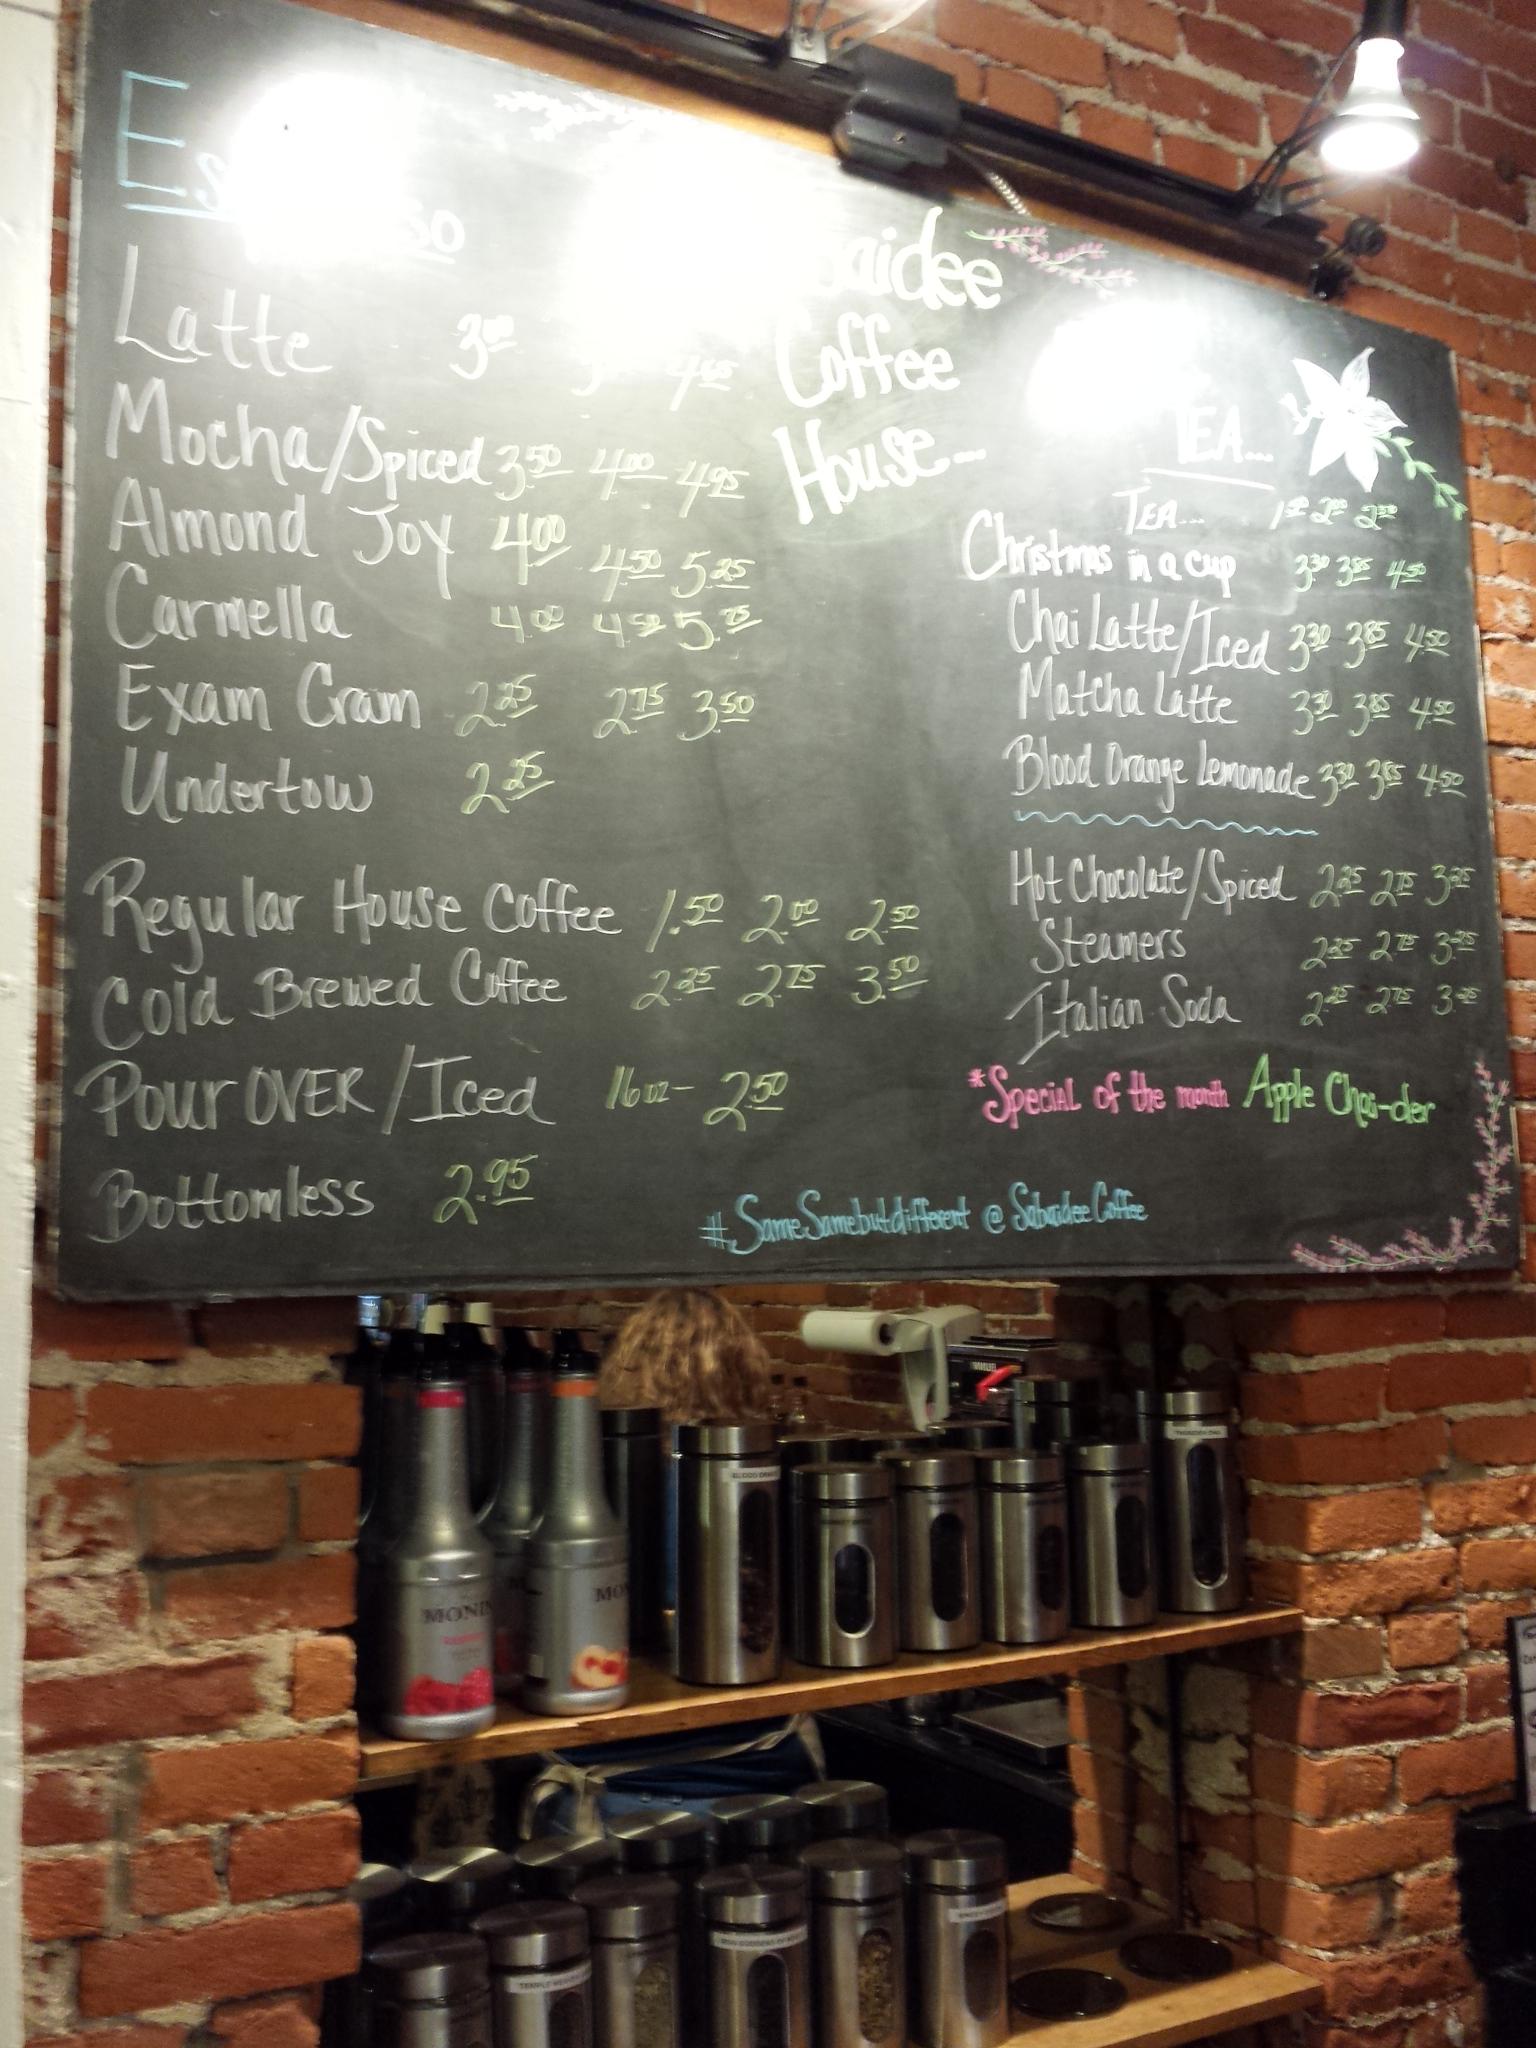 Latte 3.00 4.65
Mocha/Spiced 3.50 4.00 4.95
Almond Joy 4.00 4.50 5.25
Carmella 4.00 4.50 5.75
Exam Cram 2.25 2.75 3.50
Undertow 2.25
Regular House Coffee 1.50 2.00 2.50
Cold Brewed Coffee 2.25 2.75 3.50
Pour OVER/Iced 16oz- 2.50
Bottomless 2.95
Coffee
House...
TEA...
TEA... 1.50 2.00 2.50
Christmas in a cup 3.30 3.85 4.50
Chai Latte/Iced 3.30 3.85 4.50
Matcha Latte 3.30 3.85 4.50
Blood Orange Lemonade 3.30 3.85 4.50
Hot Chocolate/Spiced 2.25 2.75 3.25
Steamers 2.25 2.75 3.25
Italian Soda 2.25 2.75 3.25
*Special of the month Apple Chai-der
#SameSamebutdifferent @SabaideeCoffee
MONIN